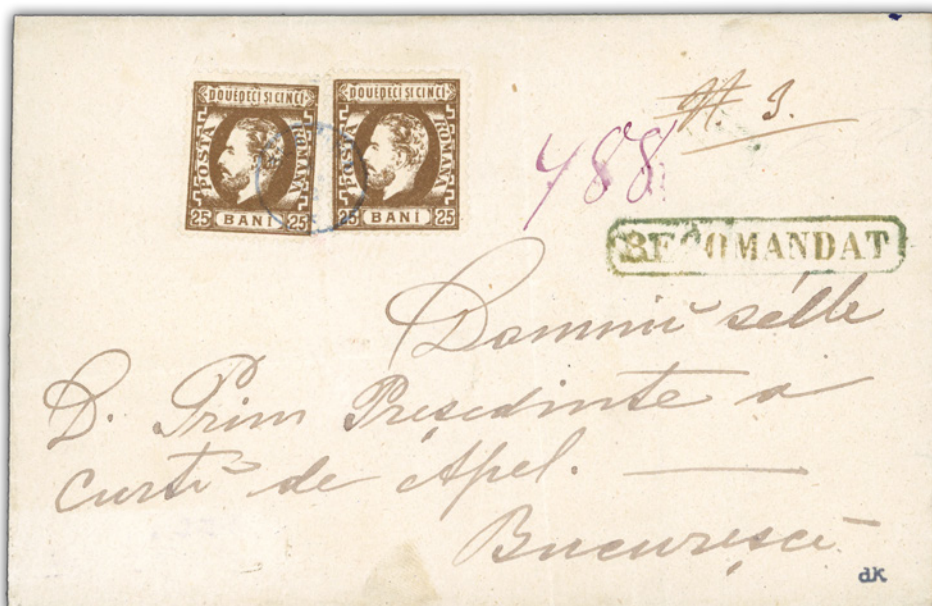 DOUEDECI SI CINCI
POSTA ROMANA
25 BANI 25
DOUEDECI SI CINCI
POSTA ROMANA
25 BANI 25
N. 3.
488
RECOMANDAT
Domniĭ sélle
D. Prim Presedinte a
Curtĭ de Apel.
Bucurescĭ
dk